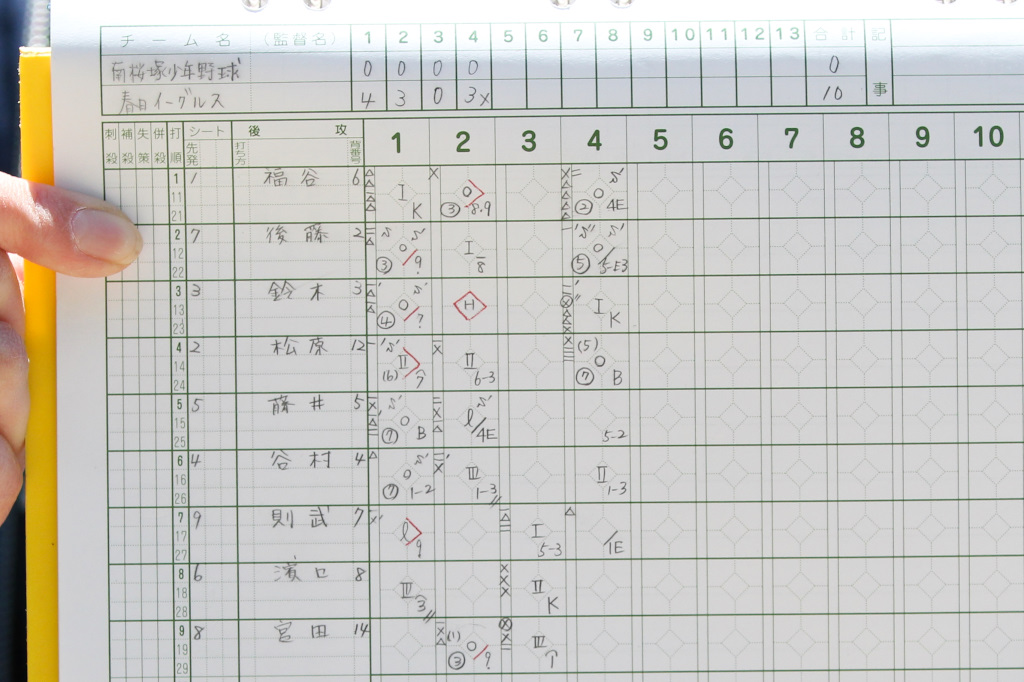 チーム名 (監督名) 1 2 3 4 5 6 7 8 9 10 11 12 13 合計 記事
南桜塚少年野球 0 0 0 0 0
春日イーグルス 4 3 0 3x 10
刺殺 補殺 失策 併殺 打順 シート 先発 後攻 打ち方 背番号 1 2 3 4 5 6 7 8 9 10
1 11 21 1 福谷 6 I K ③ 8.9 ② 4E
2 12 22 7 後藤 2 ③ 9 I 8 ⑤ 5-E3
3 13 23 3 鈴木 3 ④ 7 H I K
4 14 24 2 松原 12 II (6) 7 II 6-3 (5) ⑦ B
5 15 25 5 藤井 5 ⑦ B l 4E 5-2
6 16 26 4 谷村 4 ⑦ 1-2 III 1-3 II 1-3
7 17 27 9 則武 7 l 9 I 5-3 1E
8 18 28 6 濱口 8 III 3 II K
9 19 29 8 宮田 14 (1) ③ 9 III